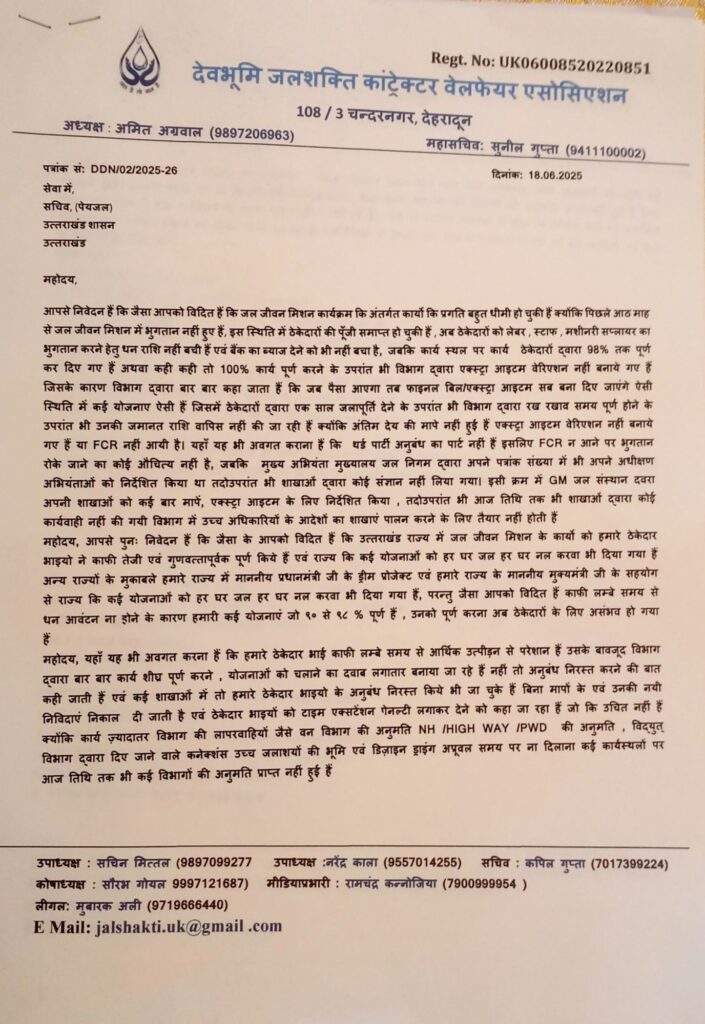 Regt. No: UK06008520220851
देवभूमि जलशक्ति कांट्रेक्टर वेलफेयर एसोसिएशन
108 / 3 चन्दरनगर, देहरादून
अध्यक्ष : अमित अग्रवाल (9897206963)
महासचिव: सुनील गुप्ता (9411100002)
पत्रांक सं: DDN/02/2025-26
दिनांक: 18.06.2025
सेवा में,
सचिव, (पेयजल)
उत्तराखंड शासन
उत्तराखंड
महोदय,
आपसे निवेदन हैं कि जैसा आपको विदित हैं कि जल जीवन मिशन कार्यक्रम कि अंतर्गत कार्यो कि प्रगति बहुत धीमी हो चुकी हैं क्योंकि पिछले आठ माह
से जल जीवन मिशन में भुगतान नहीं हुए हैं, इस स्थिति में ठेकेदारों की पूँजी समाप्त हो चुकी हैं , अब ठेकेदारों को लेबर , स्टाफ , मशीनरी सप्लायर का
भुगतान करने हेतु धन राशि नहीं बची हैं एवं बैंक का ब्याज देने को भी नहीं बचा है, जबकि कार्य स्थल पर कार्य ठेकेदारों द्वारा 98% तक पूर्ण
कर दिए गए हैं अथवा कही कही तो 100% कार्य पूर्ण करने के उपरांत भी विभाग द्वारा एक्स्ट्रा आइटम वेरिएशन नहीं बनाये गए हैं
जिसके कारण विभाग द्वारा बार बार कहा जाता हैं कि जब पैसा आएगा तब फाइनल बिल/एक्स्ट्रा आइटम सब बना दिए जाएंगे ऐसी
स्थिति में कई योजनाए ऐसी हैं जिसमें ठेकेदारों द्वारा एक साल जलापूर्ति देने के उपरांत भी विभाग द्वारा रख रखाव समय पूर्ण होने के
उपरांत भी उनकी जमानत राशि वापिस नहीं की जा रही हैं क्योंकि अंतिम देय की मापे नहीं हुई हैं एक्स्ट्रा आइटम वेरिएशन नहीं बनाये
गए हैं या FCR नहीं आयी है। यहाँ यह भी अवगत कराना हैं कि थर्ड पार्टी अनुबंध का पार्ट नहीं हैं इसलिए FCR न आने पर भुगतान
रोके जाने का कोई औचित्य नहीं है, जबकि मुख्य अभियंता मुख्यालय जल निगम द्वारा अपने पत्रांक संख्या में भी अपने अधीक्षण
अभियंताओं को निर्देशित किया था तदोउपरांत भी शाखाओं द्वारा कोई संज्ञान नहीं लिया गया। इसी क्रम में GM जल संस्थान दवरा
अपनी शाखाओं को कई बार मापें, एक्स्ट्रा आइटम के लिए निर्देशित किया , तदोउपरांत भी आज तिथि तक भी शाखाओं द्वारा कोई
कार्यवाही नहीं की गयी विभाग में उच्च अधिकारियों के आदेशों का शाखाएं पालन करने के लिए तैयार नहीं होती हैं
महोदय, आपसे पुनः निवेदन हैं कि जैसा के आपको विदित हैं कि उत्तराखंड राज्य में जल जीवन मिशन के कार्यो को हमारे ठेकेदार
भाइयो ने काफी तेजी एवं गुणवत्तापूर्वक पूर्ण किये हैं एवं राज्य कि कई योजनाओं को हर घर जल हर घर नल करवा भी दिया गया हैं
अन्य राज्यों के मुकाबले हमारे राज्य में माननीय प्रधानमंत्री जी के ड्रीम प्रोजेक्ट एवं हमारे राज्य के माननीय मुक्यमंत्री जी के सहयोग
से राज्य कि कई योजनाओं को हर घर जल हर घर नल करवा भी दिया गया हैं, परन्तु जैसा आपको विदित हैं काफी लम्बे समय से
धन आवंटन ना होने के कारण हमारी कई योजनाएं जो ९० से ९८ % पूर्ण हैं , उनको पूर्ण करना अब ठेकेदारों के लिए असंभव हो गया
हैं
महोदय, यहाँ यह भी अवगत करना हैं कि हमारे ठेकेदार भाई काफी लम्बे समय से आर्थिक उत्पीड़न से परेशान हैं उसके बावजूद विभाग
द्वारा बार बार कार्य शीघ्र पूर्ण करने , योजनाओं को चलाने का दवाब लगातार बनाया जा रहे हैं नहीं तो अनुबंध निरस्त करने की बात
कही जाती हैं एवं कई शाखाओं में तो हमारे ठेकेदार भाइयो के अनुबंध निरस्त किये भी जा चुके हैं बिना मापों के एवं उनकी नयी
निविदाएं निकाल दी जाती है एवं ठेकेदार भाइयों को टाइम एक्सटेंशन पेनल्टी लगाकर देने को कहा जा रहा हैं जो कि उचित नहीं हैं
क्योंकि कार्य ज़्यादातर विभाग की लापरवाहियों जैसे वन विभाग की अनुमति NH /HIGH WAY /PWD की अनुमति , विद्युत्
विभाग द्वारा दिए जाने वाले कनेक्शंस उच्च जलाशयों की भूमि एवं डिज़ाइन ड्राइंग अप्रूवल समय पर ना दिलाना कई कार्यस्थलों पर
आज तिथि तक भी कई विभागों की अनुमति प्राप्त नहीं हुई हैं
उपाध्यक्ष : सचिन मित्तल (9897099277 उपाध्यक्ष :नरेंद्र काला (9557014255) सचिव : कपिल गुप्ता (7017399224)
कोषाध्यक्ष : सौरभ गोयल 9997121687) मीडियाप्रभारी : रामचंद्र कन्नोजिया (7900999954 )
लीगल: मुबारक अली (9719666440)
E Mail: jalshakti.uk@gmail .com